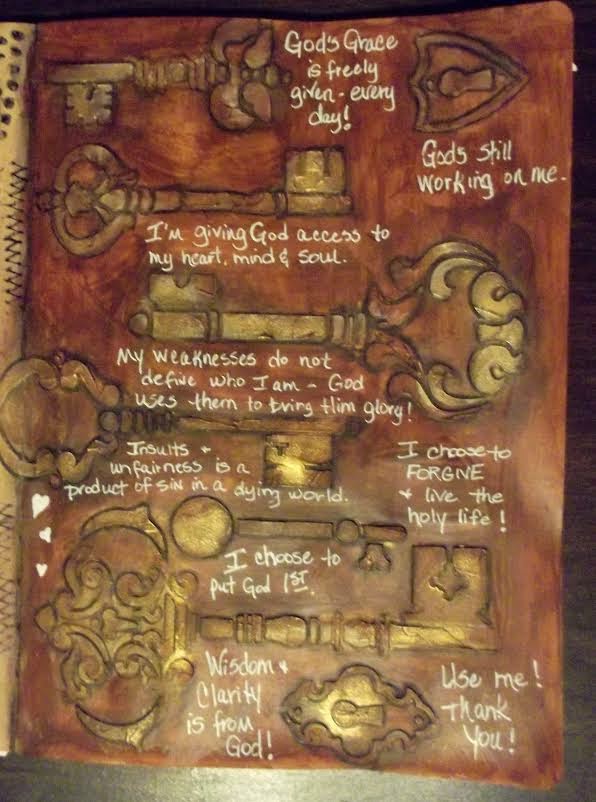 God's Grace
is freely
given - every
day!
God's still
working on me.
I'm giving God access to
my heart, mind & soul.
My weaknesses do not
define who I am - God
uses them to bring Him glory!
Insults +
unfairness is a
product of sin in a dying world.
I choose to
FORGIVE
+ live the
holy life!
I choose to
put God 1ST.
Wisdom +
Clarity
is from
God!
Use me!
Thank
You!